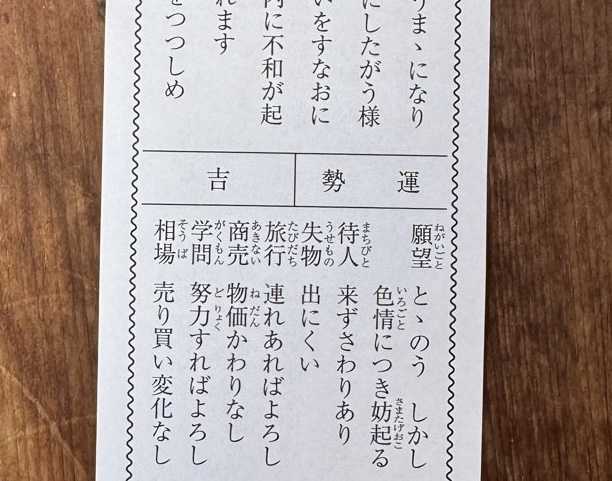 うまゝになり
にしたがう様
いをすなおに
内に不和が起
れます
をつつしめ
運勢
吉
ねがいごと
願望 とゝのう しかし
いろごと さまたげおこ
色情につき妨起る
まちびと
待人 来ずさわりあり
うせもの
失物 出にくい
たびだち
旅行 連れあればよろし
あきない ねだん
商売 物価かわりなし
がくもん どりょく
学問 努力すればよろし
そうば
相場 売り買い変化なし